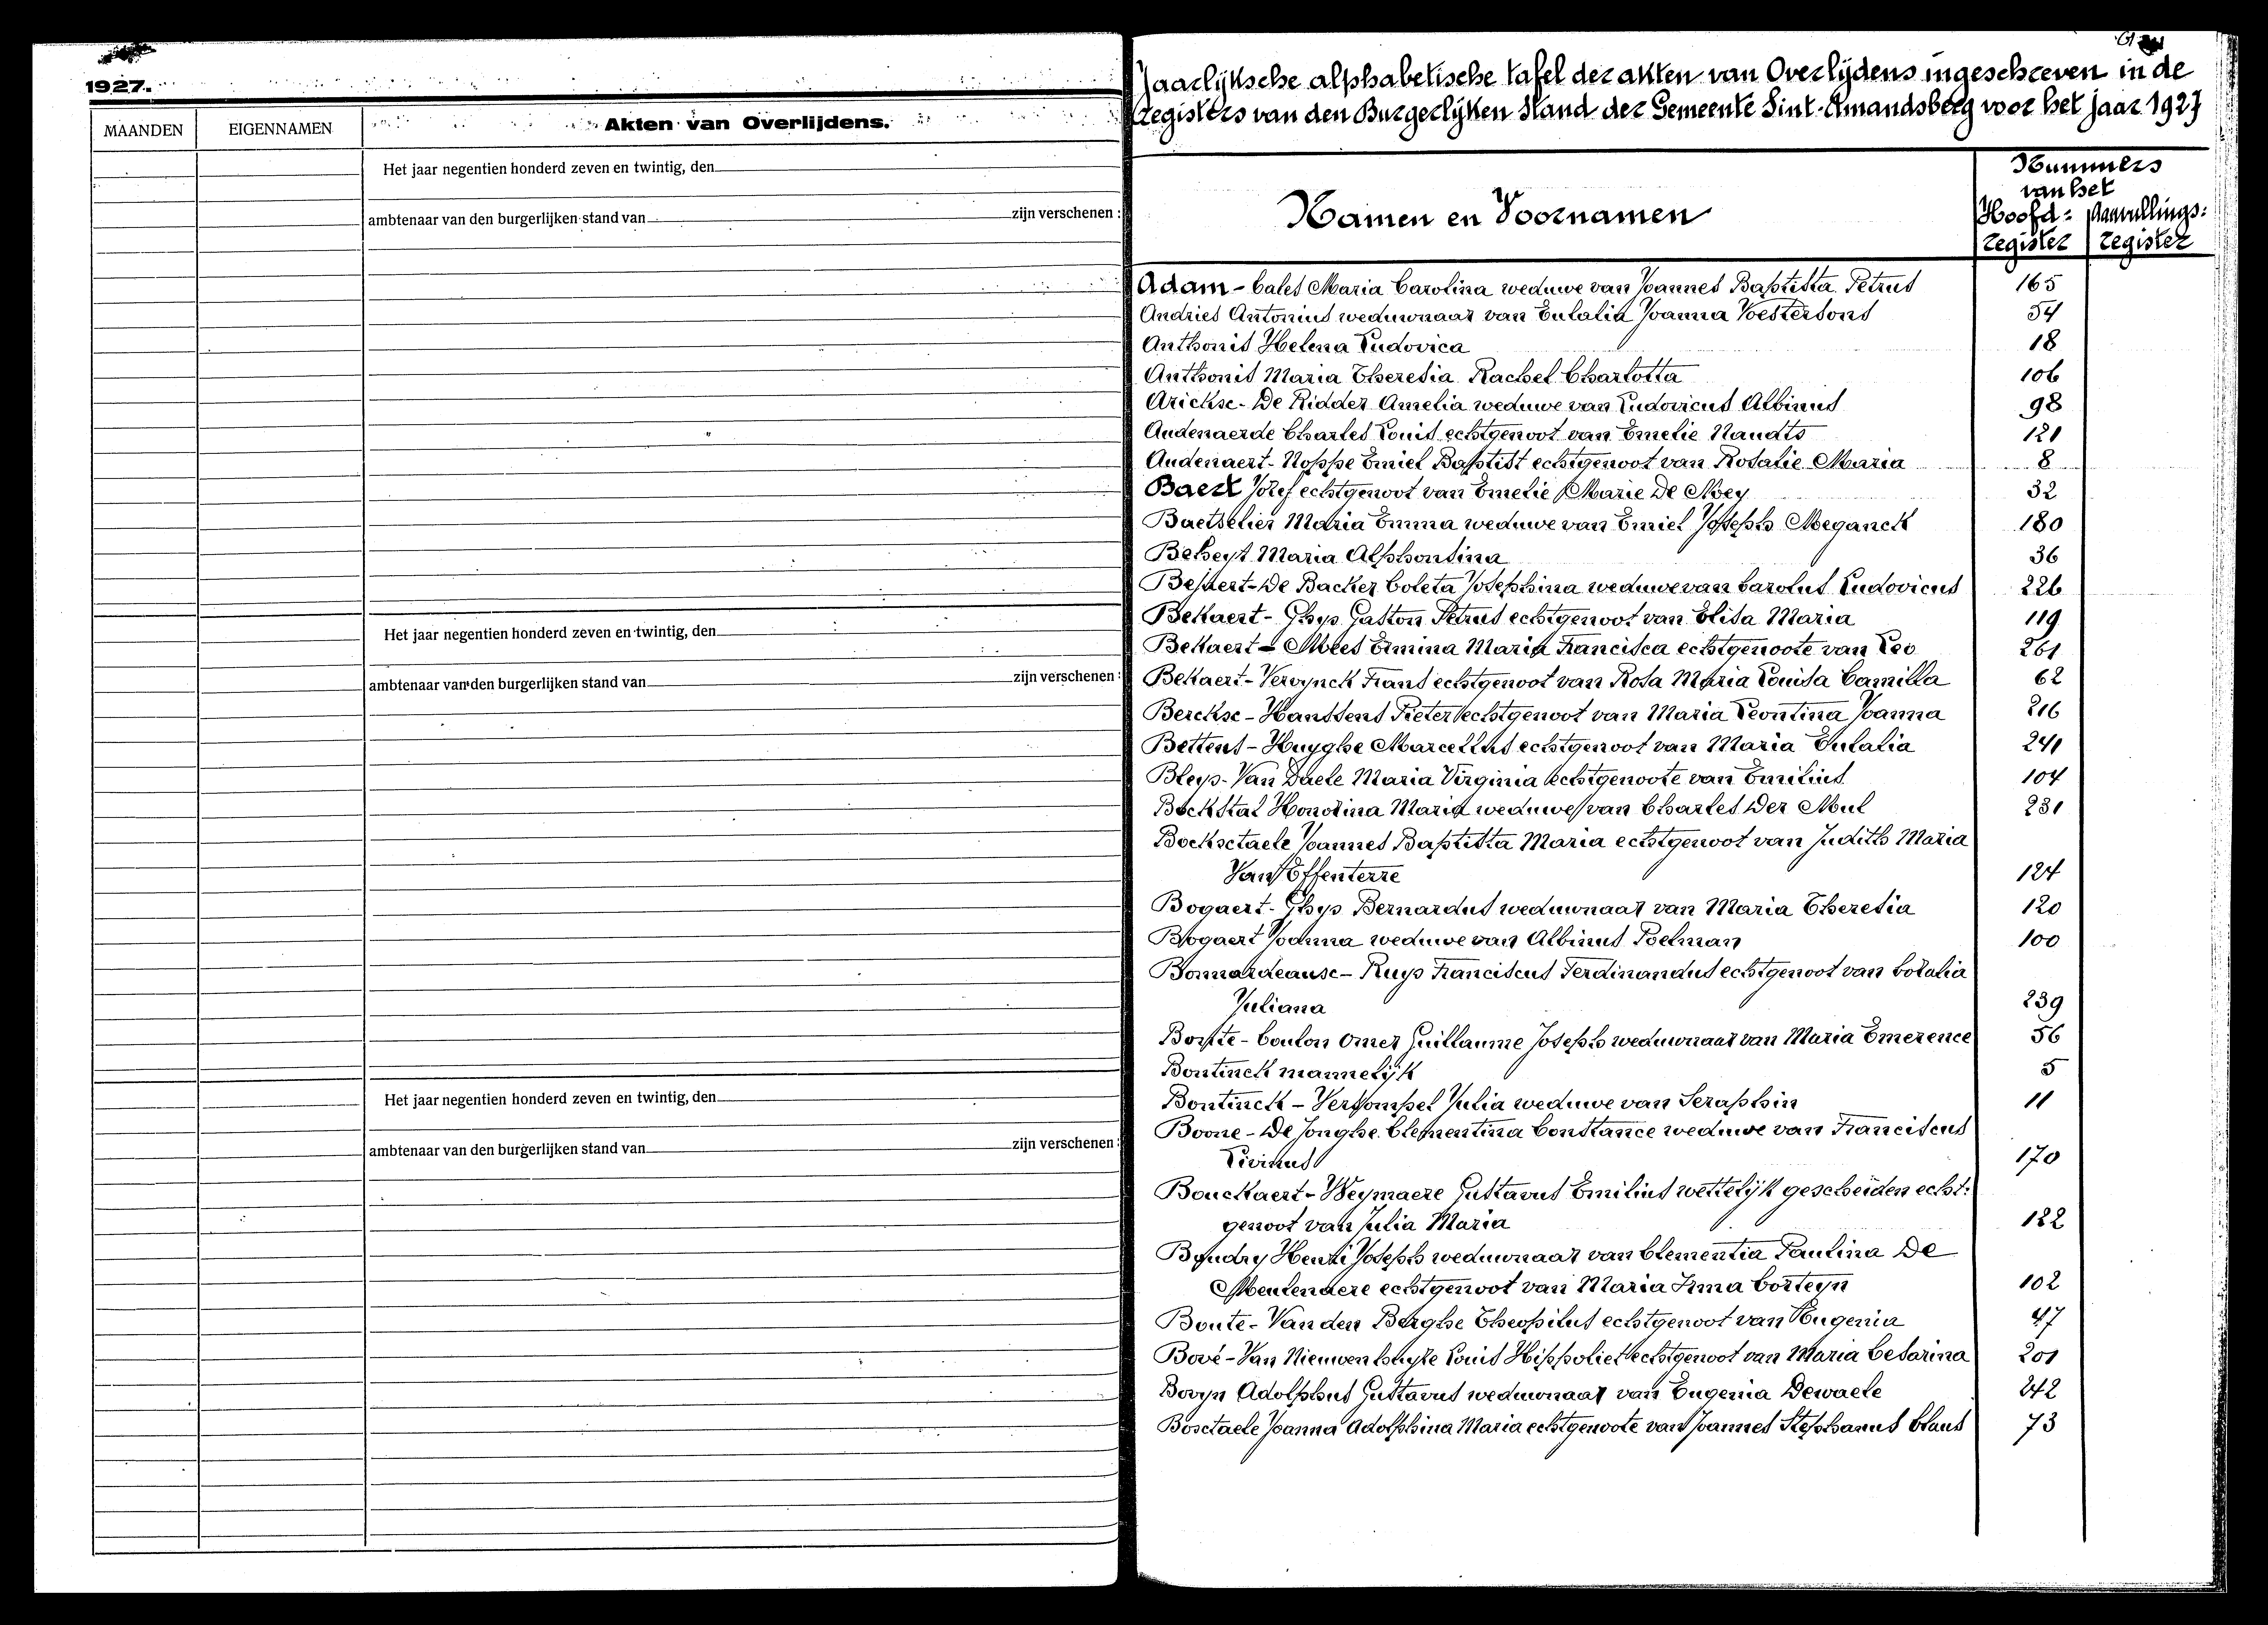 1927.
MAANDEN
EIGENNAMEN
Akten van Overlijdens.
Het jaar negentien honderd zeven en twintig, den
ambtenaar van den burgerlijken stand van
zijn verschenen :
Het jaar negentien honderd zeven en twintig, den
ambtenaar van den burgerlijken stand van
zijn verschenen :
Het jaar negentien honderd zeven en twintig, den
ambtenaar van den burgerlijken stand van
zijn verschenen :
Jaarlijksche alphabetische tafel der akten van Overlijdens ingeschreven in de
Registers van den Burgerlijken Stand der Gemeente Sint-Amandsberg voor het jaar 1927
Namen en Voornamen
Nummers
van het
Hoofd= Aanvullings=
register register
Adam - Cales Maria Carolina weduwe van Joannes Baptista Petrus 165
Andries Antonius weduwnaar van Eulalia Joanna Voesterdons 54
Anthonis Helena Ludovica 18
Anthonis Maria Theresia Rachel Charlotta 106
Arickx - De Ridder Amelia weduwe van Ludovicus Albinus 98
Audenaerde Charles Louis echtgenoot van Emelie Naudts 121
Audenaert - Noppe Emiel Baptist echtgenoot van Rosalie Maria 8
Baert Jozef echtgenoot van Emelie Marie De Moey 32
Baetselier Maria Emma weduwe van Emiel Joseph Meganck 180
Beheyt Maria Alphonsina 36
Bejaert - De Backer Coleta Josephina weduwe van Carolus Ludovicus 226
Bekaert - Ghys Gaston Petrus echtgenoot van Elisa Maria 119
Bekaert - Mees Ermina Maria Francisca echtgenoote van Leo 261
Bekaert - Vervynck Frans echtgenoot van Rosa Maria Louisa Camilla 62
Berckx - Hanssens Pieter echtgenoot van Maria Leontina Joanna 216
Bettens - Huyghe Marcellus echtgenoot van Maria Eulalia 241
Bleys - Van Daele Maria Virginia echtgenoote van Emilius 104
Bockstal Honorina Maria weduwe van Charles Der Mul 231
Bockxtaele Joannes Baptista Maria echtgenoot van Judith Maria
Van Effenterre 124
Bogaert - Ghys Bernardus weduwnaar van Maria Theresia 120
Bogaert Joanna weduwe van Albinus Poelman 100
Bonnardeaux - Ruys Franciscus Ferdinandus echtgenoot van Coralia
Juliana 239
Bonte - Coulon Omer Guillaume Joseph weduwnaar van Maria Emerence 56
Bontinck mannelijk 5
Bontinck - Versompel Julia weduwe van Seraphin 11
Boone - De Jonghe Clementina Constance weduwe van Franciscus
Livinus 170
Bouckaert - Weymaere Gustavus Emilius wettelijk gescheiden echt=
genoot van Julia Maria 122
Boudry Henri Joseph weduwnaar van Clementia Paulina De
Meulenaere echtgenoot van Maria Irma Corteyn 102
Boute - Van den Berghe Theophilus echtgenoot van Eugenia 47
Bové - Van Nieuwenhuyse Louis Hippoliet echtgenoot van Maria Cesarina 201
Bovyn Adolphus Gustavus weduwnaar van Eugenia Dewaele 242
Boxtaele Joanna Adolphina Maria echtgenoote van Joannes Stephanus Claus 73